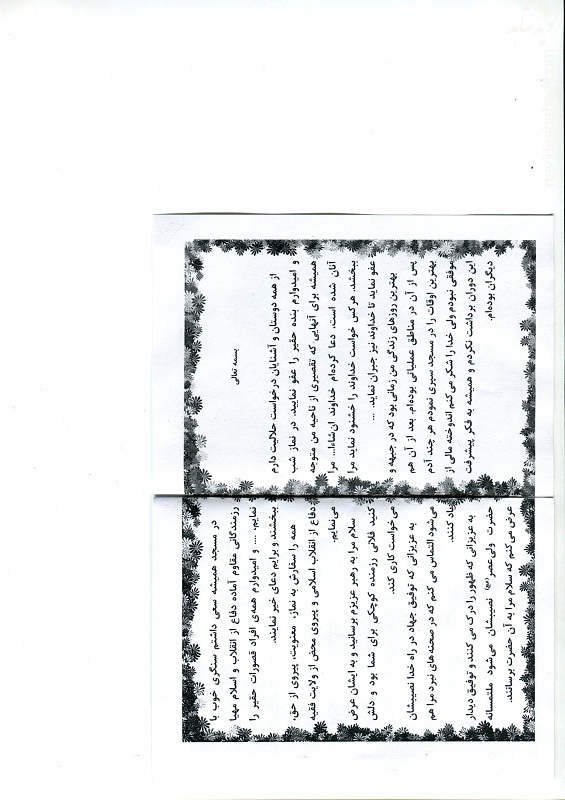 بسمه تعالی
از همه دوستان و آشنایان درخواست حلالیت دارم
و امیدوارم بنده حقیر را عفو نمایید. در نماز شب
همیشه برای آنهایی که تقصیری از ناحیه من متوجه
آنان شده است، دعا کرده‌ام خداوند ان‌شاءا... مرا
ببخشد. هرکس خواست خداوند را خشنود نماید مرا
عفو نماید تا خداوند نیز جبران نماید. ...
بهترین روزهای زندگی من زمانی بود که در جبهه و
پس از آن در مناطق عملیاتی بوده‌ام. بعد از آن هم
بهترین اوقات را در مسجد سپری نمودم هر چند آدم
موفقی نبودم ولی خدا را شکر می‌کنم اندوخته مالی از
این دوران برداشت نکردم و همیشه به فکر پیشرفت
دیگران بوده‌ام.
در مسجد همیشه سعی داشتم سنگری خوب با
رزمندگانی مقاوم آماده دفاع از انقلاب و اسلام مهیا
نمایم. ... و امیدوارم همه‌ی افراد قصورات حقیر را
ببخشند و برایم دعای خیر نمایند.
همه را سفارش به نماز، معنویت، پیروی از حق،
دفاع از انقلاب اسلامی و پیروی محض از ولایت فقیه
می‌نمایم.
سلام مرا به رهبر عزیزم برسانید و به ایشان عرض
کنید فلانی رزمنده کوچکی برای شما بود و دلش
می‌خواست کاری کند.
به عزیزانی که توفیق جهاد در راه خدا نصیبشان
می‌شود التماس می‌کنم که در صحنه‌های نبرد مرا هم
یاد کنند.
به عزیزانی که ظهور را درک می‌کنند و توفیق دیدار
حضرت ولی‌عصر (عج) نصیبشان می‌شود ملتمسانه
عرض می‌کنم که سلام مرا به آن حضرت برسانند.